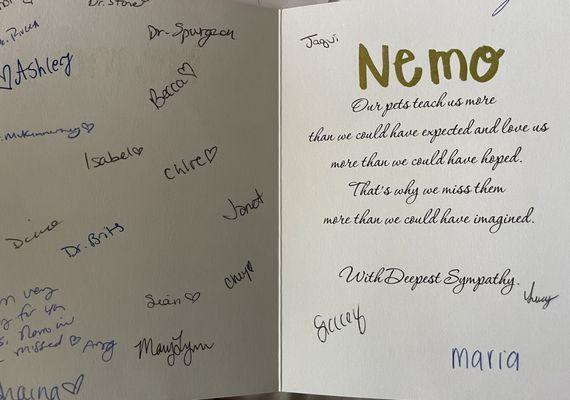 Dr. Stone
Dr. Spurgeon
♡Ashley
Becca♡
McKinney♡
Isabel♡
Chloe♡
Janet
Diana
Dr. Brits
Chey♡
Sean♡
very
for you
Nemo
missed♡ Amy
MaryLynn
Shaina♡
Jaqui
Nemo
Our pets teach us more
than we could have expected and love us
more than we could have hoped.
That's why we miss them
more than we could have imagined.
With Deepest Sympathy.
maria